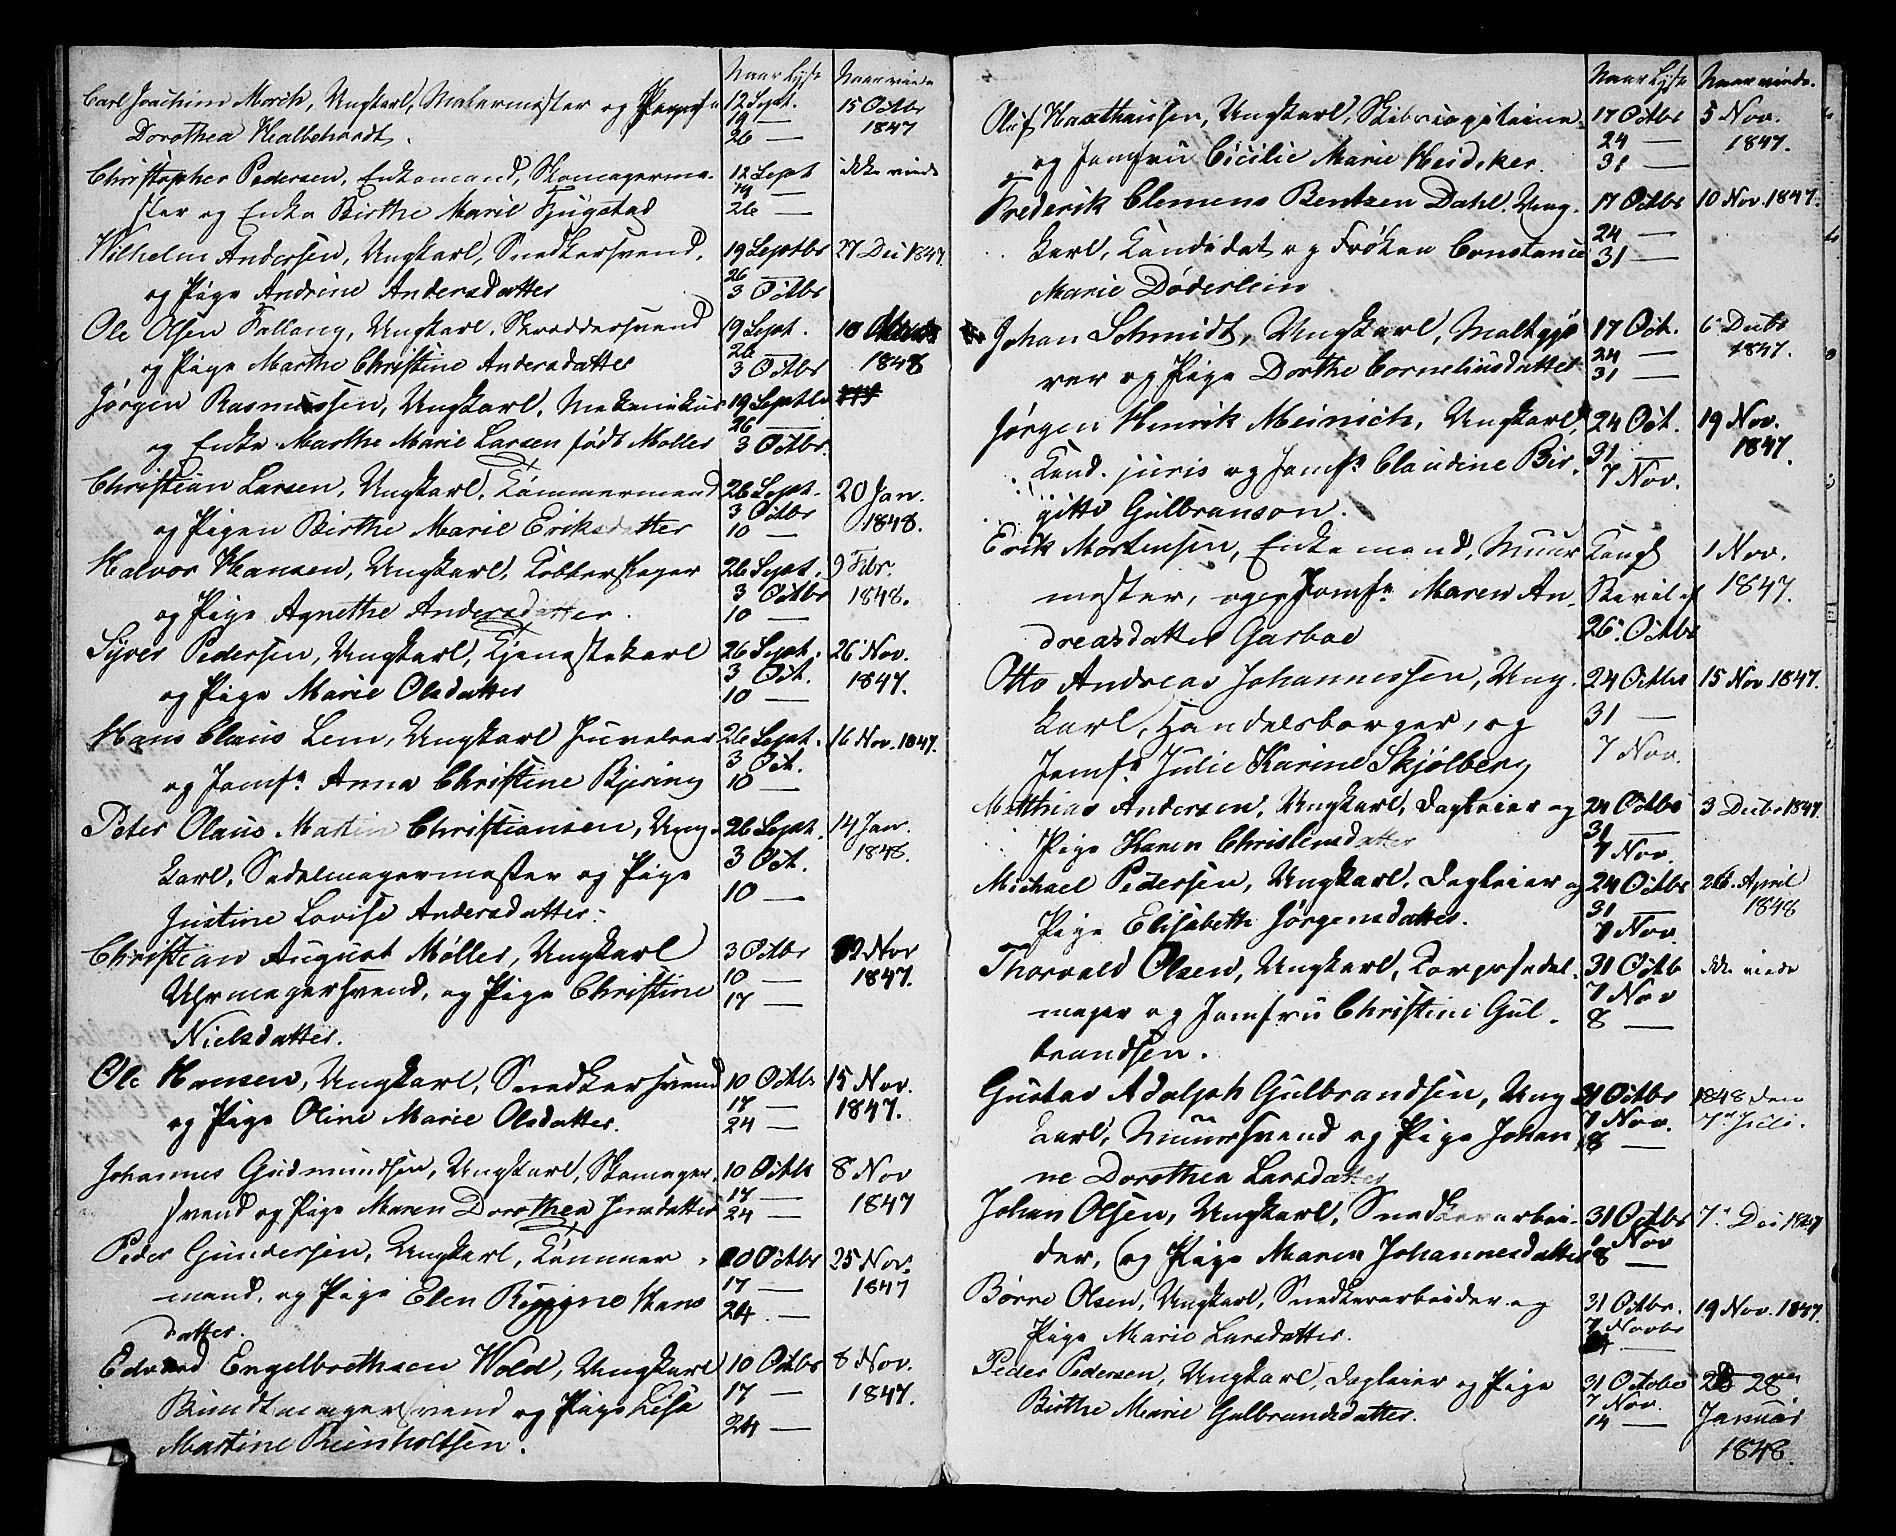 Naar lyst Naar viede
Carl Joachim Morch, Ungkarl, Malermester og 12 Sept. 15 Octbr
Dorothea 19 — 1847
26 —
Christopher Pedersen, Enkemand, Skomagerme- 12 Sept ikke viede
ster og Enke Birthe Marie 19 —
26 —
Wilhelm Andersen, Ungkarl, Snedkersvend, 19 Septbr 27 Dec 1847
og Pige Andrine Andersdatter 26 —
3 Octbr
Ole Olsen Fallang, Ungkarl, Skræddersvend 19 Sept. 18
og Pige Marthe Christine Andersdatter 26 — 1848
3 Octbr
Jørgen Rasmussen, Ungkarl, Mekanikus 19 Septbr
og Enke Marthe Marie Larsen født Møller 26 —
3 Octbr.
Christian Larsen, Ungkarl, Tømmermand 26 Sept. 20 Jan.
og Pigen Birthe Marie Eriksdatter 3 Octbr 1848.
10 —
Halvor Hansen, Ungkarl, Kobberslager 26 Sept. 9 Febr.
og Pige Agnethe Andersdatter. 3 Octbr 1848.
10 —
Syver Pedersen, Ungkarl, Tjenestekarl 26 Sept. 26 Nov.
og Pige Marie Olsdatter 3 Oct. 1847.
10 —
Hans Claus Lem, Ungkarl Juveleer 26 Sept. 16 Nov. 1847.
og Jomfr. Anna Christine Bjering 3 Oct.
10 —
Peter Olaus Martin Christiansen, Ung- 26 Sept. 14 Jan.
karl, Sadelmagermester og Pige 3 Oct. 1848.
Justine Lovise Andersdatter. 10 —
Christian August Møller, Ungkarl 3 Octbr Nov
Uhrmagersvend, og Pige Christine 10 — 1847.
Nielsdatter. 17 —
Ole Hansen, Ungkarl, Snedkersvend 10 Octbr 15 Nov.
og Pige Oline Marie Olsdatter. 17 — 1847.
24 —
Johannes Gudmundsen, Ungkarl, Skomager- 10 Octbr 8 Nov
svend og Pige Maren Dorothea Jensdatter 17 — 1847
24 —
Peder Gundersen, Ungkarl, Tømmer- 10 Octbr 25 Nov.
mand, og Pige Elen Hans 17 — 1847
datter. 24 —
Edvard Engelbrethsen Wold, Ungkarl 10 Octbr 8 Nov.
Bundtmagersvend og Pige Lise 17 — 1847.
Martine Reinholtsen. 24 —
Naar lyst Naar viede.
Oluf Haxthausen, Ungkarl, 17 Octbr 5 Nov.
og Jomfru Cicilie Marie Heideker. 24 — 1847.
31 —
Frederik Clemens Bentzen Dahl, Ung- 17 Octbr 10 Nov. 1847.
karl, Kandidat og Frøken Constance 24 —
Marie Døderlein 31 —
Johan Schmidt, Ungkarl, Maltgjø 17 Oct. 6 Decbr
rer og Pige Dorthe Corneliusdatter 24 — 1847.
31 —
Jørgen Henrik Meinich, Ungkarl, 24 Oct. 19 Nov.
Cand. juris og Jomfr. Claudine Bir- 31 — 1847.
gitte Gulbranson. 7 Nov.
Erik Mortensen, Enkemand, Muur Kongl 1 Nov.
mester, og Jomfr. Maren An- Bevil. af 1847.
dreasdatter Garboe 26. Octbr
Otto Andreas Johannessen, Ung- 24 Octbr 15 Nov 1847.
karl, Handelsborger, og 31 —
Jomfr. Julie Karine Skjølberg 7 Nov.
Matthias Andersen, Ungkarl, Dagleier og 24 Octbr 3 Decbr 1847.
Pige Karen Christensdatter 31 —
7 Nov.
Michael Pedersen, Ungkarl, Dagleier og 24 Octbr 26. April
Pige Elisabeth Jørgensdatter. 31 — 1848
7 Nov.
Thorvald Olsen, Ungkarl, 31 Octb ikke viede
mager og Jomfru Christine Gul- 7 Nov
brandsen. 8 —
Gustav Adolph Gulbrandsen, Ung 31 Octbr 1848 den
karl, Muursvend og Pige Johan 7 Nov. 7de Juli.
ne Dorothea Larsdatter 8 —
Johan Olsen, Ungkarl, Snedkerarbei- 31 Octbr 7de Dec 1847
der, og Pige Maren Johannesdatter 7 Nov
8 —
Børre Olsen, Ungkarl, Snedkerarbeider og 31 Octbr. 19 Nov. 1847.
Pige Marie Larsdatter. 7 Novbr
Peder Pedersen, Ungkarl, Dagleier og Pige 31 Octobr 28
Birthe Marie Gulbrandsdatter. 7 Nov. Januar
14 — 1848.